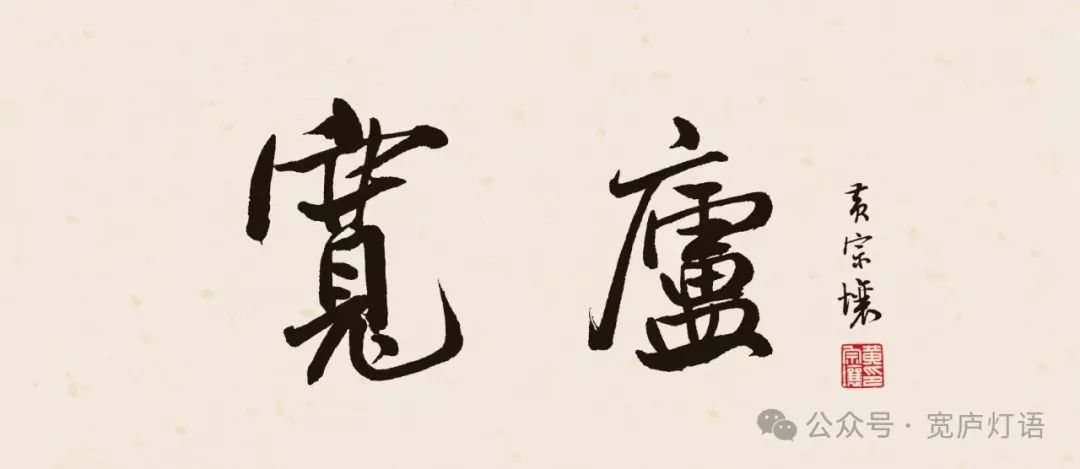 寬廬
黄宗壤
黄印宗壤
公众号·宽庐灯语